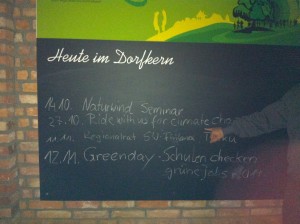 Heute im Dorfkern
14.10. Naturwind Seminar
23.10. Ride with us for climate
11.11. Regionalrat
12.11. Greenday - Schulen checken
grüne jobs